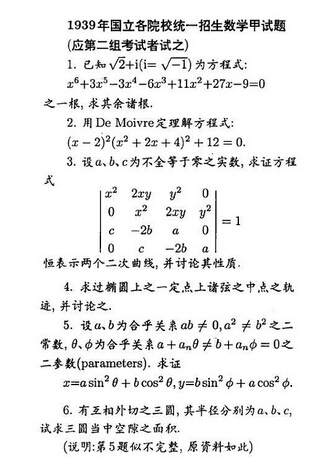 1939年国立各院校统一招生数学甲试题
(应第二组考试者试之)
1. 已知√2+i(i= √−1) 为方程式:
x⁶+3x⁵−3x⁴−6x³+11x²+27x−9=0
之一根, 求其余诸根.
2. 用De Moivre定理解方程式:
(x − 2)²(x² + 2x + 4)² + 12 = 0.
3. 设a、b、c为不全等于零之实数, 求证方程
式
| x² 2xy y² 0 |
| 0 x² 2xy y² | = 1
| c −2b a 0 |
| 0 c −2b a |
恒表示两个二次曲线, 并讨论其性质.
4. 求过椭圆上之一定点上诸弦之中点之轨
迹, 并讨论之.
5. 设a、b为合乎关系ab ≠ 0, a² ≠ b²之二
常数, θ、ϕ为合乎关系a + aₙθ ≠ b + aₙϕ = 0之
二参数(parameters). 求证
x=a sin² θ + b cos² θ, y=b sin² ϕ + a cos² ϕ.
6. 有互相外切之三圆, 其半径分别为a、b、c,
试求三圆当中空隙之面积.
(说明:第5题似不完整, 原资料如此)